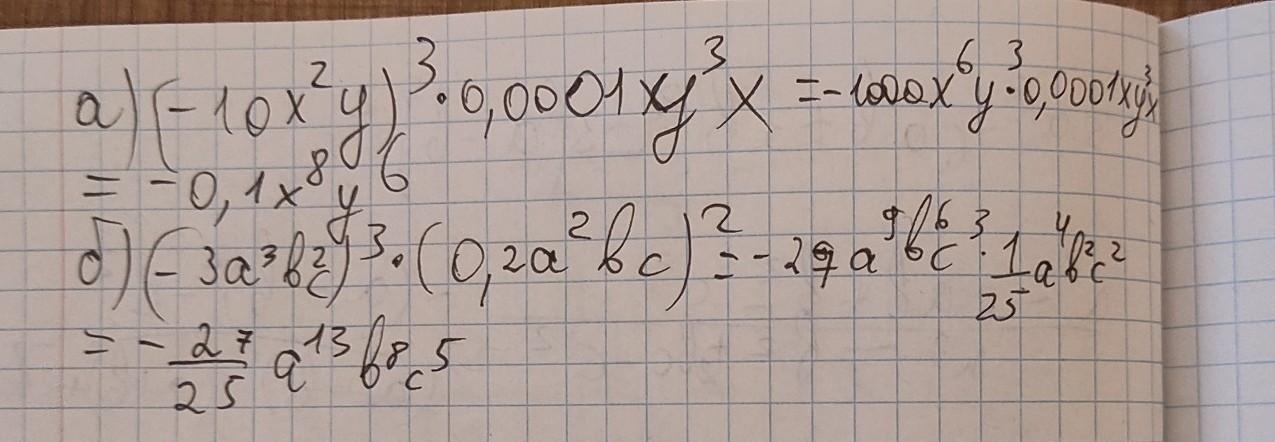 а) (-10x²y)³·0,0001xy³x = -1000x⁶y³·0,0001xy³x
= -0,1x⁸y⁶
б) (-3a³b²c)³·(0,2a²bc)² = -27a⁹b⁶c³·1/25a⁴b²c²
= -27/25 a¹³b⁸c⁵